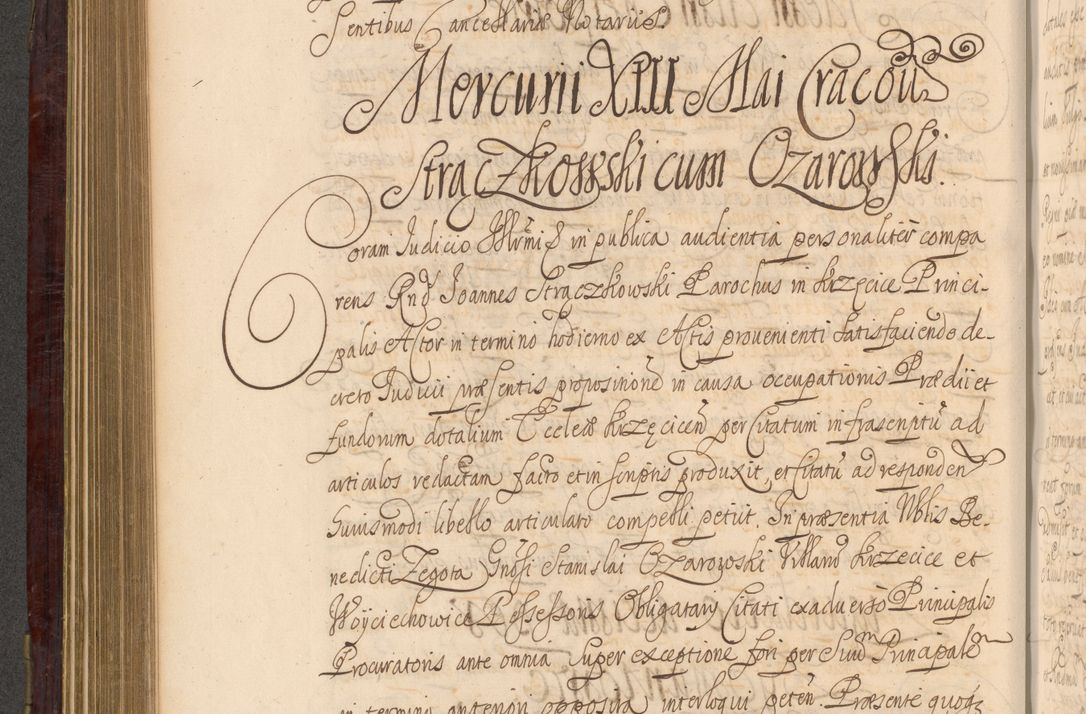 sentibus Cancellariæ Notariis.
Mercurii XIII Mai Cracoviæ
Strączkowski cum Ozarowski.
Coram Judicio Illrmi & in publica audientia personaliter compa
rens Rnd Joannes Strączkowski Parochus in Krzęcice Princi-
palis Actor in termino hodierno ex Actis provenienti satisfaciendo de-
creto Judicii præsentis propositionē in causa occupationis Prædii et
fundorum dotalium Ecclæ Krzęcicen per Citatum infrascriptū ad
articulos redactam facto et in scriptis produxit, et Citatū ad responden
huiusmodi libello articulato compelli petiit. In præsentia Nblis Be-
nedicti Zegota Gnōsi Stanislai Ozarowski Villarū Krzecice et
Woyciechowice Possessoris Obligatarij Citati ex adverso Principalis
Procuratoris ante omnia super exceptione fori per Suū Principalē
in termino anteriori opposita interloqui peten. Præsente quoq